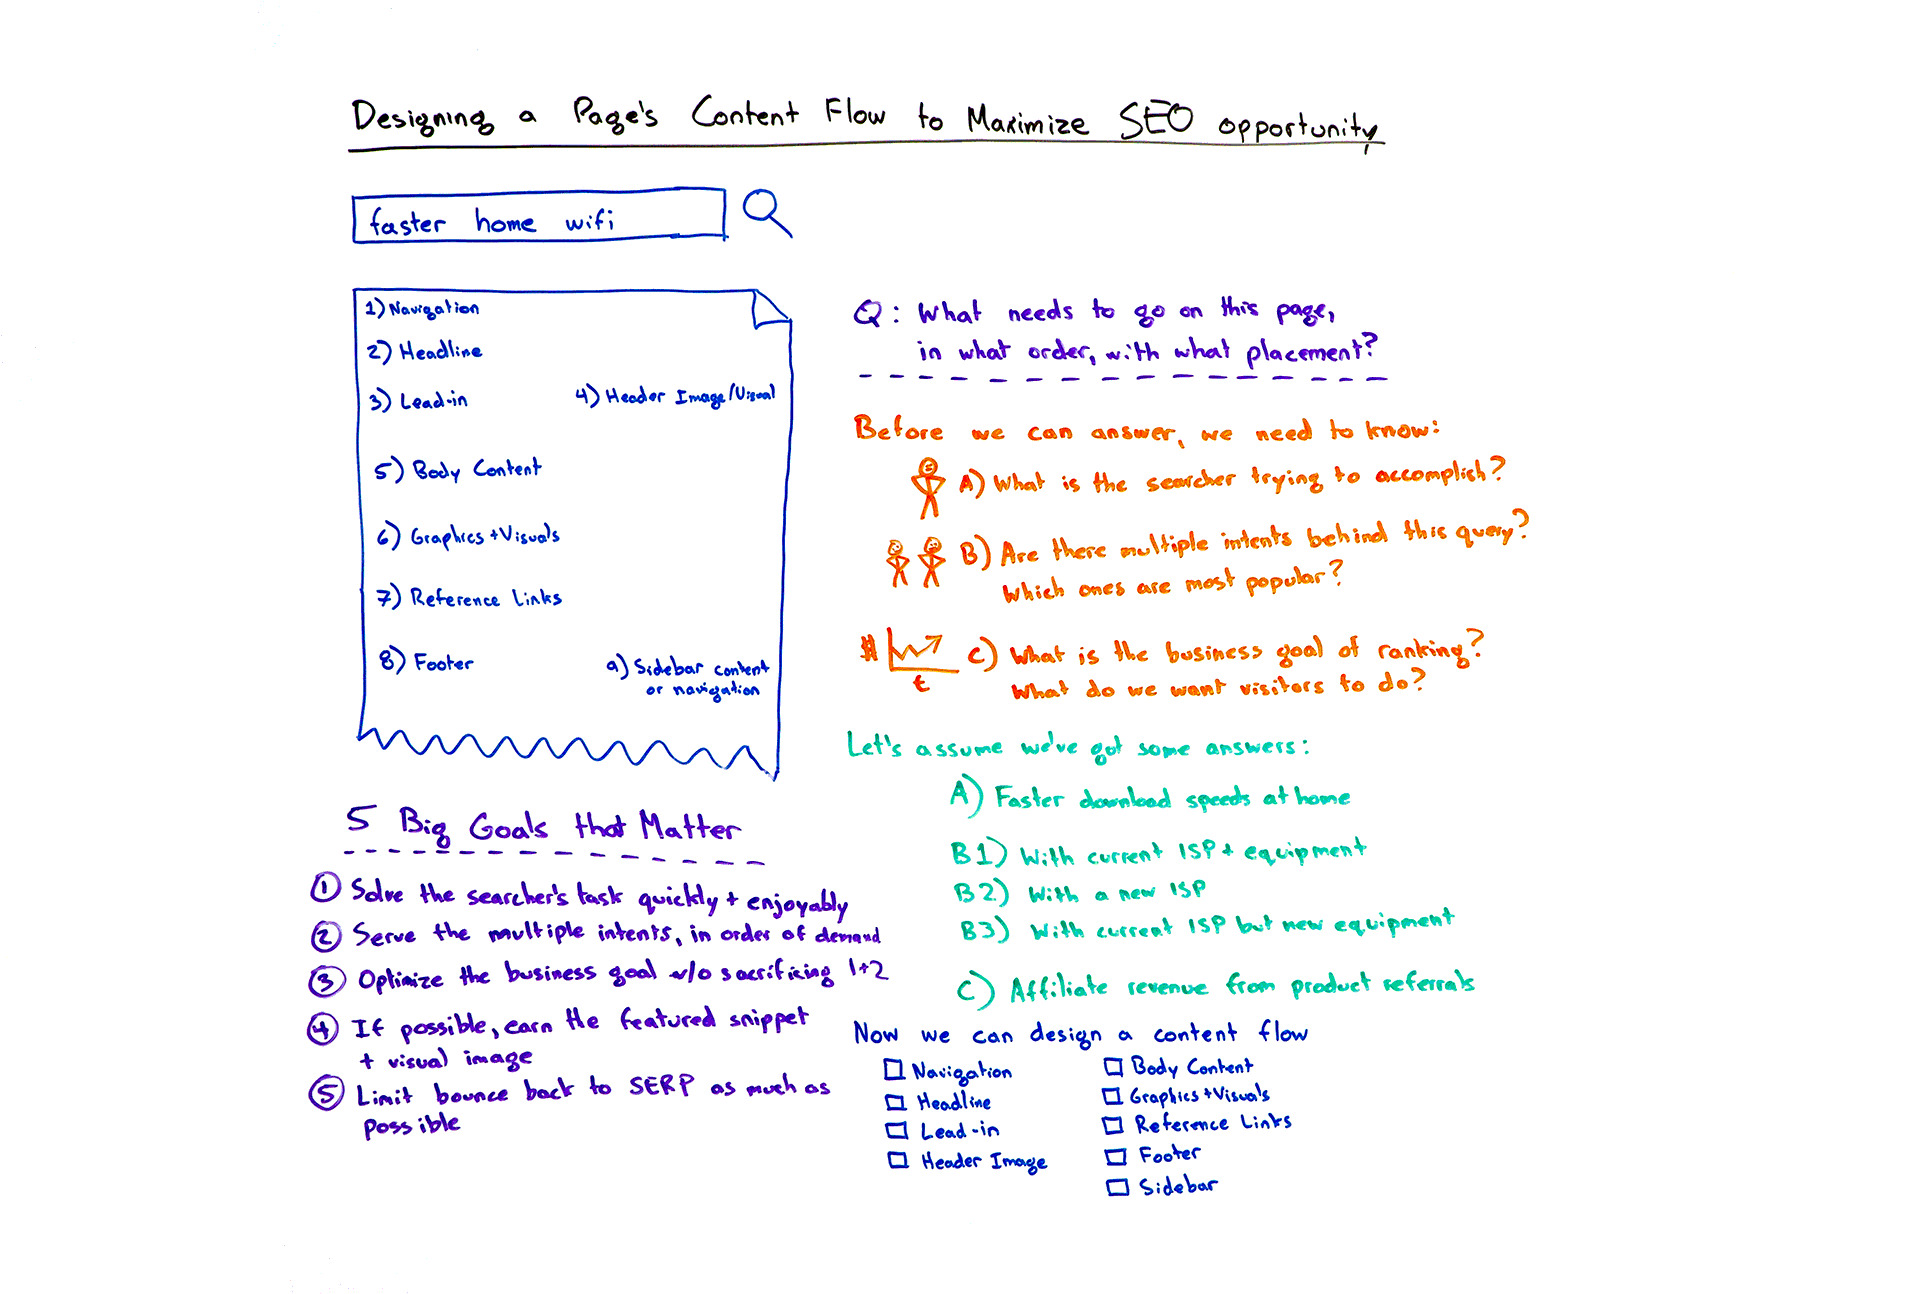 Designing a Page's Content Flow to Maximize SEO opportunity
faster home wifi
1) Navigation
2) Headline
3) Lead-in
4) Header Image/Visual
5) Body Content
6) Graphics + Visuals
7) Reference Links
8) Footer
9) Sidebar content
or navigation
5 Big Goals that Matter
1 Solve the searcher's task quickly + enjoyably
2 Serve the multiple intents, in order of demand
3 Optimize the business goal w/o sacrificing 1+2
4 If possible, earn the featured snippet
+ visual image
5 Limit bounce back to SERP as much as
possible
Q: What needs to go on this page,
in what order, with what placement?
Before we can answer, we need to know:
A) What is the searcher trying to accomplish?
B) Are there multiple intents behind this query?
Which ones are most popular?
$
t
C) What is the business goal of ranking?
What do we want visitors to do?
Let's assume we've got some answers:
A) Faster download speeds at home
B1) With current ISP + equipment
B2) With a new ISP
B3) With current ISP but new equipment
C) Affiliate revenue from product referrals
Now we can design a content flow
Navigation
Headline
Lead-in
Header Image
Body Content
Graphics + Visuals
Reference Links
Footer
Sidebar